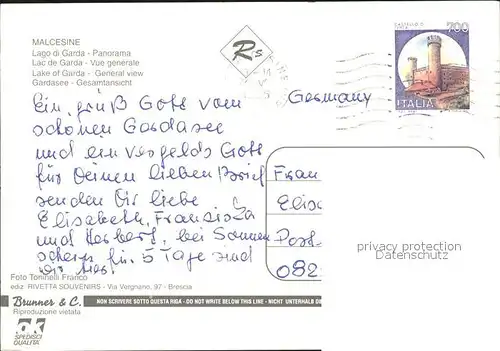 MALCESINE
Lago di Garda - Panorama
Lac de Garda - Vue generale
Lake of Garda - General view
Gardasee - Gesamtansicht
Rs
CASTELLO DI
700
ITALIA
Germany
Ein gruß Gott vom
schönen Gardasee
und ein vergelds Gott
für Deinen lieben Brief
senden Dir liebe
Elisabeth, Franziska
und Herbert, bei Sonnen
schein für 5 Tage sind
wir hier
Frau
Elisa
Post-
082
privacy protection
Datenschutz
Foto Toninelli Franco
ediz RIVETTA SOUVENIRS - Via Vergnano, 97 - Brescia
Brunner & C.
NON SCRIVERE SOTTO QUESTA RIGA - DO NOT WRITE BELOW THIS LINE - NICHT UNTERHALB DI
Riproduzione vietata
OK
SPEDISCI
QUALITÀ